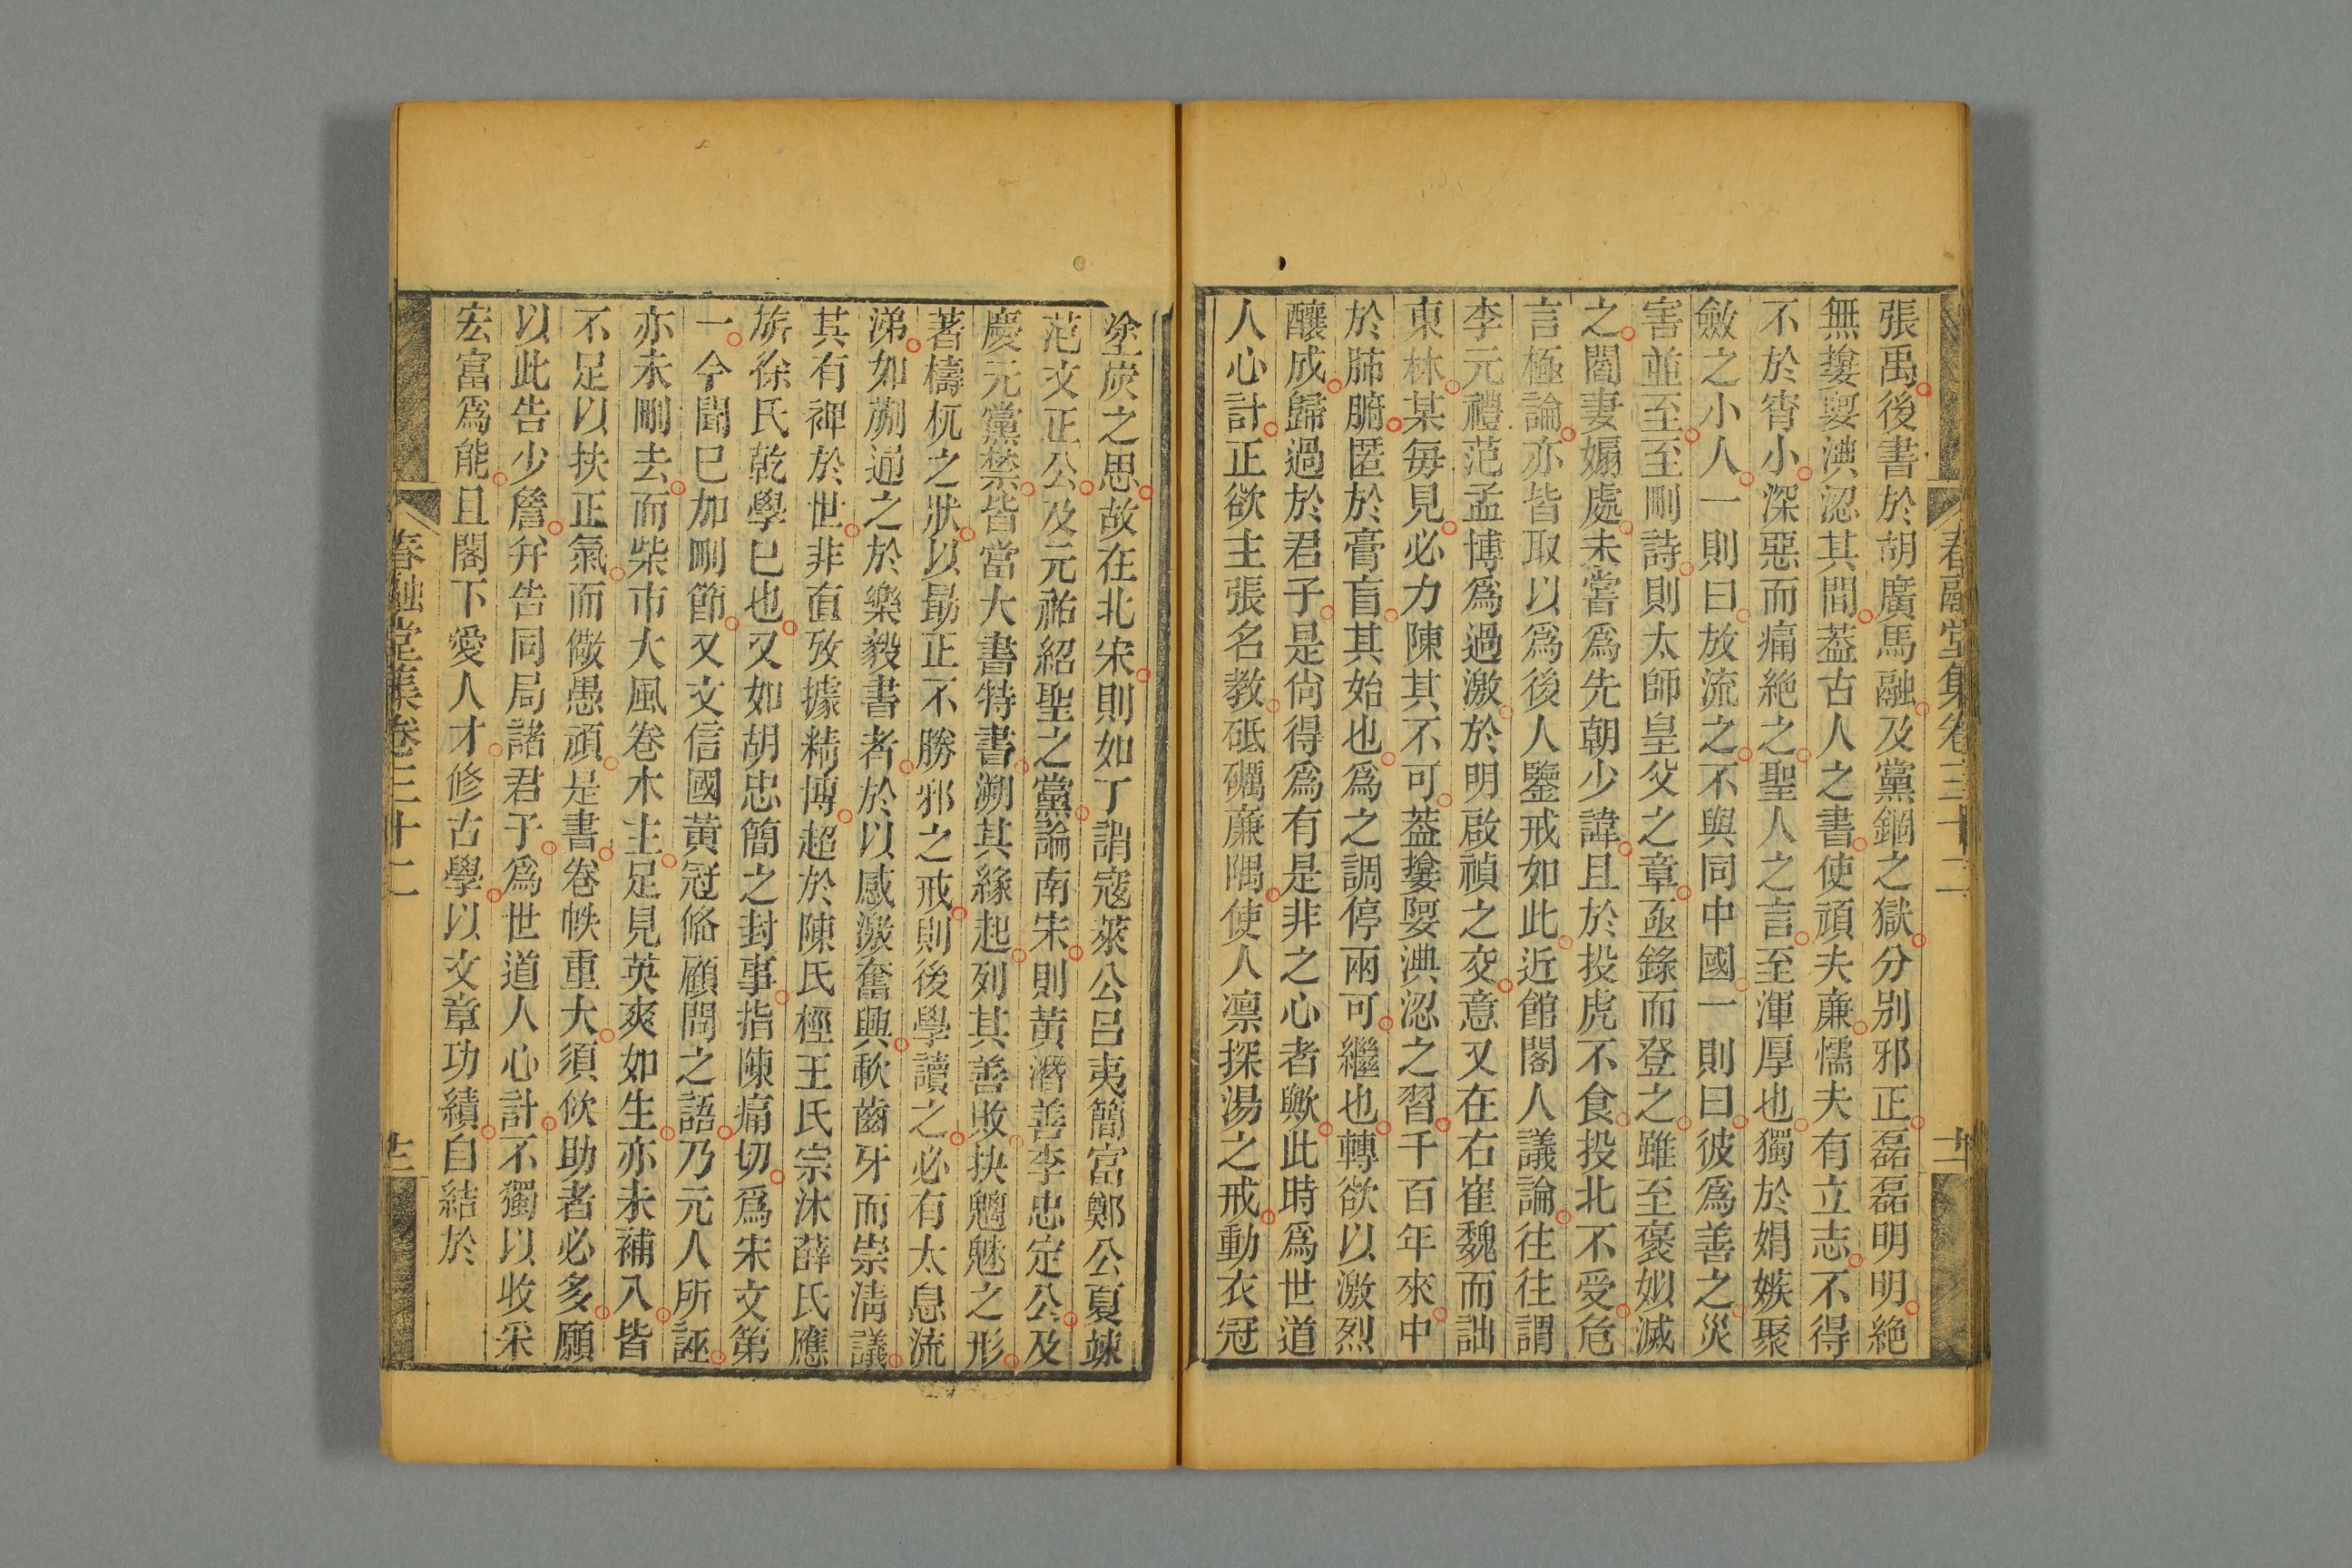 春融堂集卷三十二
十二
張禹後書於胡廣馬融及黨錮之獄分别邪正磊磊明明絶
無㜪婀淟涊其間葢古人之書使頑夫廉懦夫有立志不得
不於宵小深惡而痛絶之聖人之言至渾厚也獨於娼嫉聚
斂之小人一則曰放流之不與同中國一則曰彼爲善之災
害並至至刪詩則太師皇父之章亟錄而登之雖至褒姒滅
之閻妻煽處未嘗爲先朝少諱且於投虎不食投北不受危
言極論亦皆取以爲後人鑒戒如此近館閣人議論往往謂
李元禮范孟博爲過激於明啟禎之交意又在右崔魏而詘
東林某每見必力陳其不可葢淟涊之習千百年來中
於肺腑匿於膏肓其始也爲之調停兩可繼也轉欲以激烈
釀成歸過於君子是尙得爲有是非之心者歟此時爲世道
人心計正欲主張名教砥礪廉隅使人凛探湯之戒動衣冠
塗炭之思故在北宋則如丁謂寇萊公呂夷簡富鄭公夏竦
范文正公及元祐紹聖之黨論南宋則黃潛善李忠定公及
慶元黨禁皆當大書特書溯其緣起列其善敗抉魑魅之形
著檮杌之狀以最正不勝邪之戒則後學讀之必有太息流
涕如蒯通之於樂毅書者於以感激奮興軟齒牙而崇淸議
其有裨於世非直攷據精博超於陳氏桱王氏宗沐薛氏應
旂徐氏乾學已也又如胡忠簡之封事指陳痛切爲宋文第
一今聞已加刪節又文信國黃冠俻顧問之語乃元人所誣
亦未刪去而柴市大風卷木主足見英爽如生亦未補入皆
不足以扶正氣而儆愚頑是書卷帙重大須佽助者必多願
以此告少詹弁告同局諸君子爲世道人心計不獨以收采
宏富爲能且閣下愛人才修古學以文章功績自結於
春融堂集卷三十二
十三